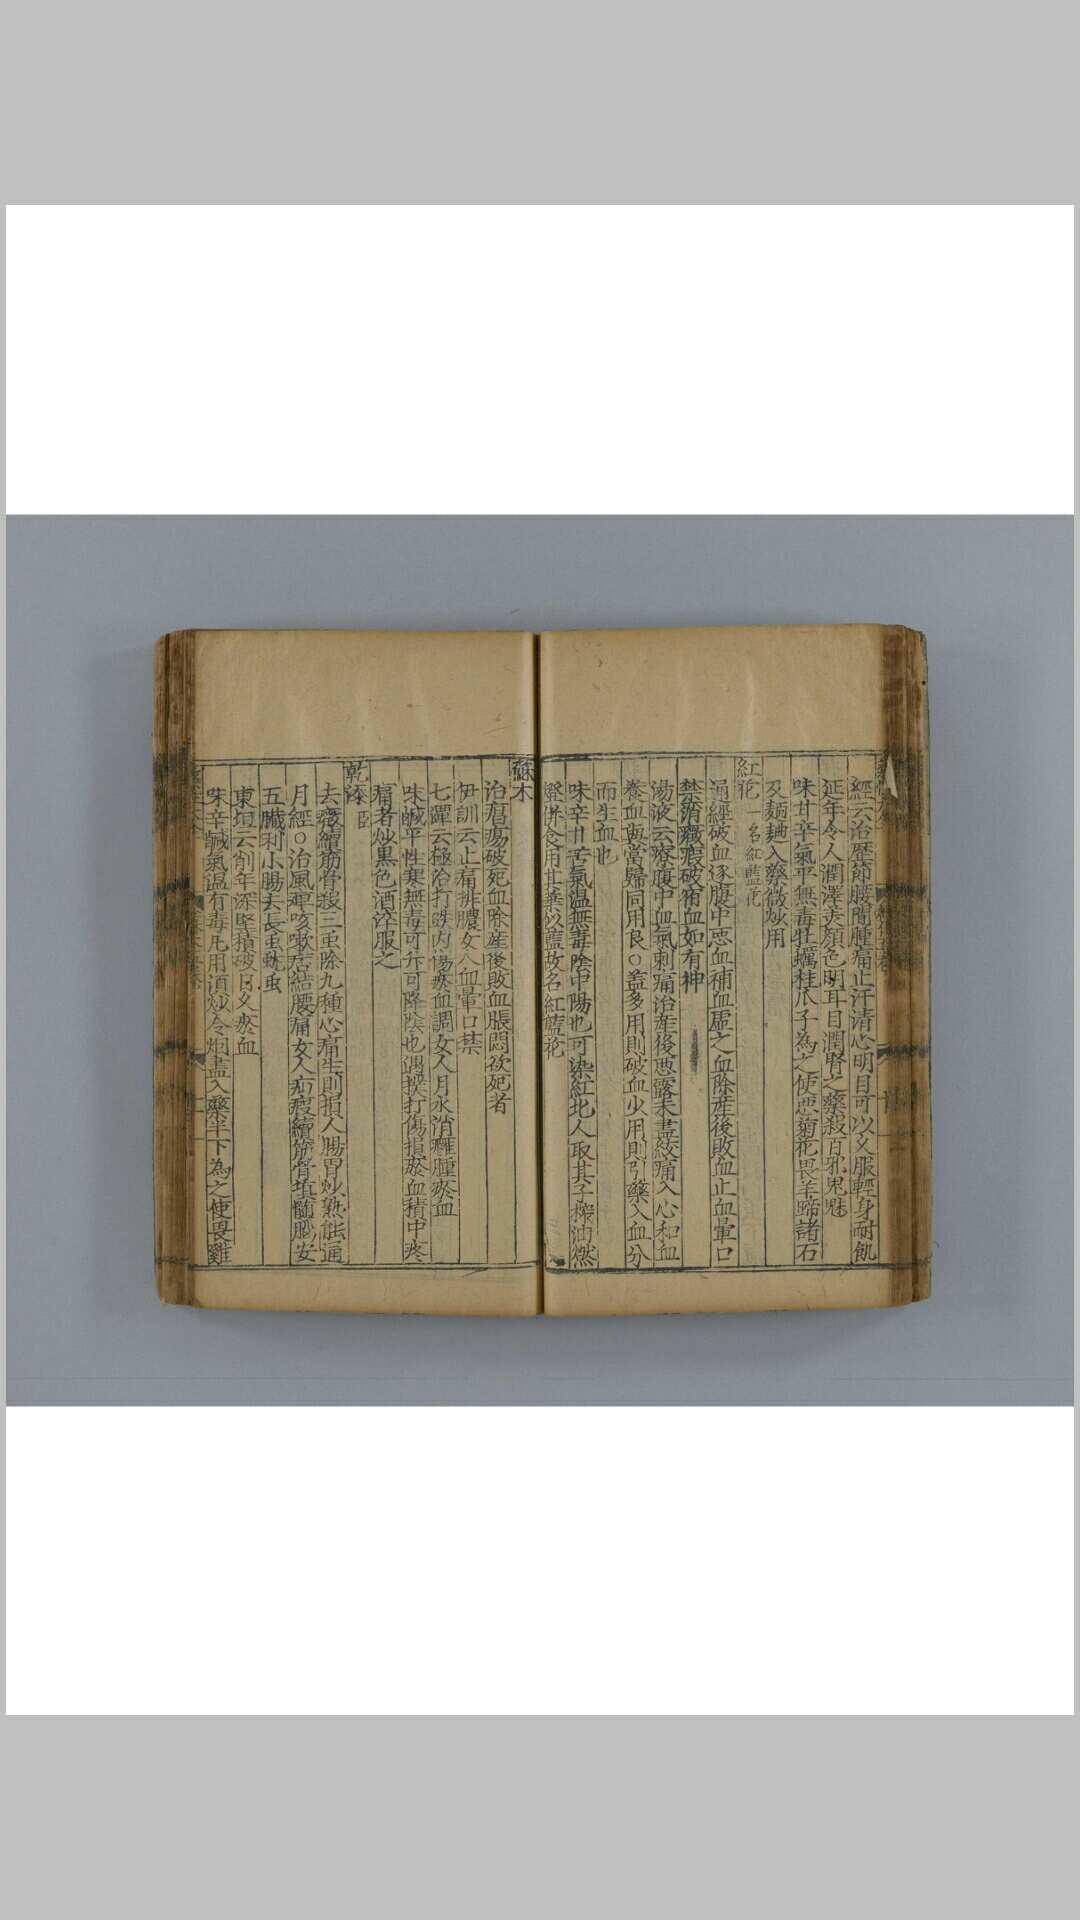 經云治歷節腰間腫痛止汗清心明目可以久服輕身耐飢
延年令人潤澤美顏色明耳目潤腎之藥殺百邪鬼魅
味甘辛氣平無毒牡蠣桂爪子為之使惡菊花畏羊蹄諸石
及麵麯入藥微炒用
紅花一名紅藍花
通經破血逐腹中惡血補血虛之血除産後敗血止血暈口
禁消癥瘕破宿血如有神
湯液云療腹中血氣刺痛治産後惡露未盡絞痛入心和血
養血與當歸同用良○蓋多用則破血少用則引藥入血分
而生血也
味辛甘苦氣溫無毒陰中陽也可染紅北人取其子榨油燃
燈併食用其葉似藍故名紅藍花
蘇木
治瘡瘍破死血除産後敗血脹悶欲死者
伊訓云止痛排膿女人血暈口禁
七潭云極治打跌內傷瘀血調女人月水消癰腫瘀血
味鹹平性寒無毒可升可降陰也遇撲打傷損瘀血積中疼
痛者炒黑色酒淬服之
乾漆 臣
去癥續筋骨殺三虫除九種心痛生則損人腸胃炒熟能通
月經○治風寒咳嗽痞結腰痛女人疝瘕續筋骨填髓腦安
五臟利小腸去長虫蚘虫
東垣云削年深堅積破日久瘀血
味辛鹹氣溫有毒凡用須炒令烟盡入藥半下為之使畏雞